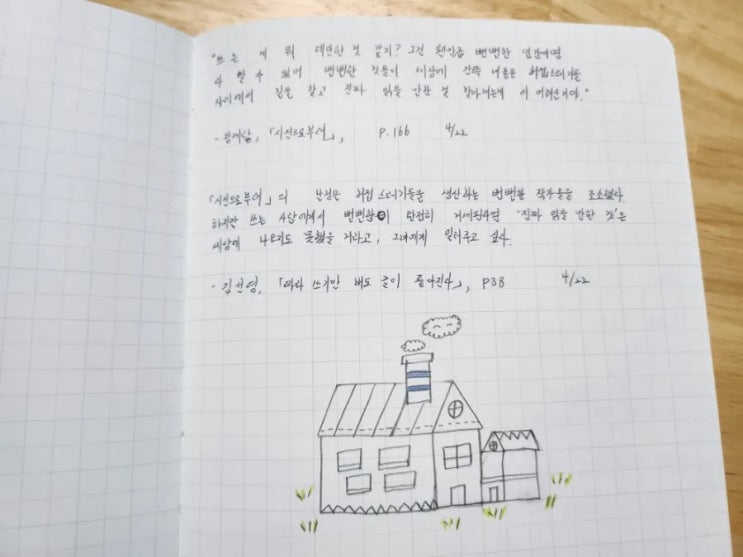 "쓰는 게 뭐 대단한 것 같지? 그건 웬만큼 뻔뻔한 인간이면
다 할 수 있어. 뻔뻔한 것들이 세상에 잔뜩 내놓은 허접쓰레기들
사이에서 길을 찾고 진짜 읽을 만한 걸 찾아내는게 더 어려운거야."
- 정세랑, 「시선으로부터」, p.166 4/22
「시선으로부터」의 난정은 허접쓰레기들을 생산하는 뻔뻔한 작가들을 조소했다.
하지만 쓰는 사람에게서 뻔뻔함이 완전히 거세된다면 '진짜 읽을 만한 것'은
세상에 나오지도 못했을 거라고, 그녀에게 일러주고 싶다.
- 김선영, 「따라 쓰기만 해도 글이 좋아진다」, p38 4/22